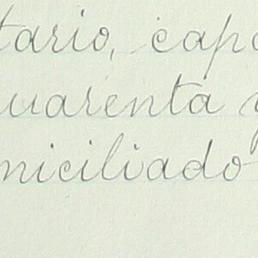 tario, capa
uarenta y
miciliado